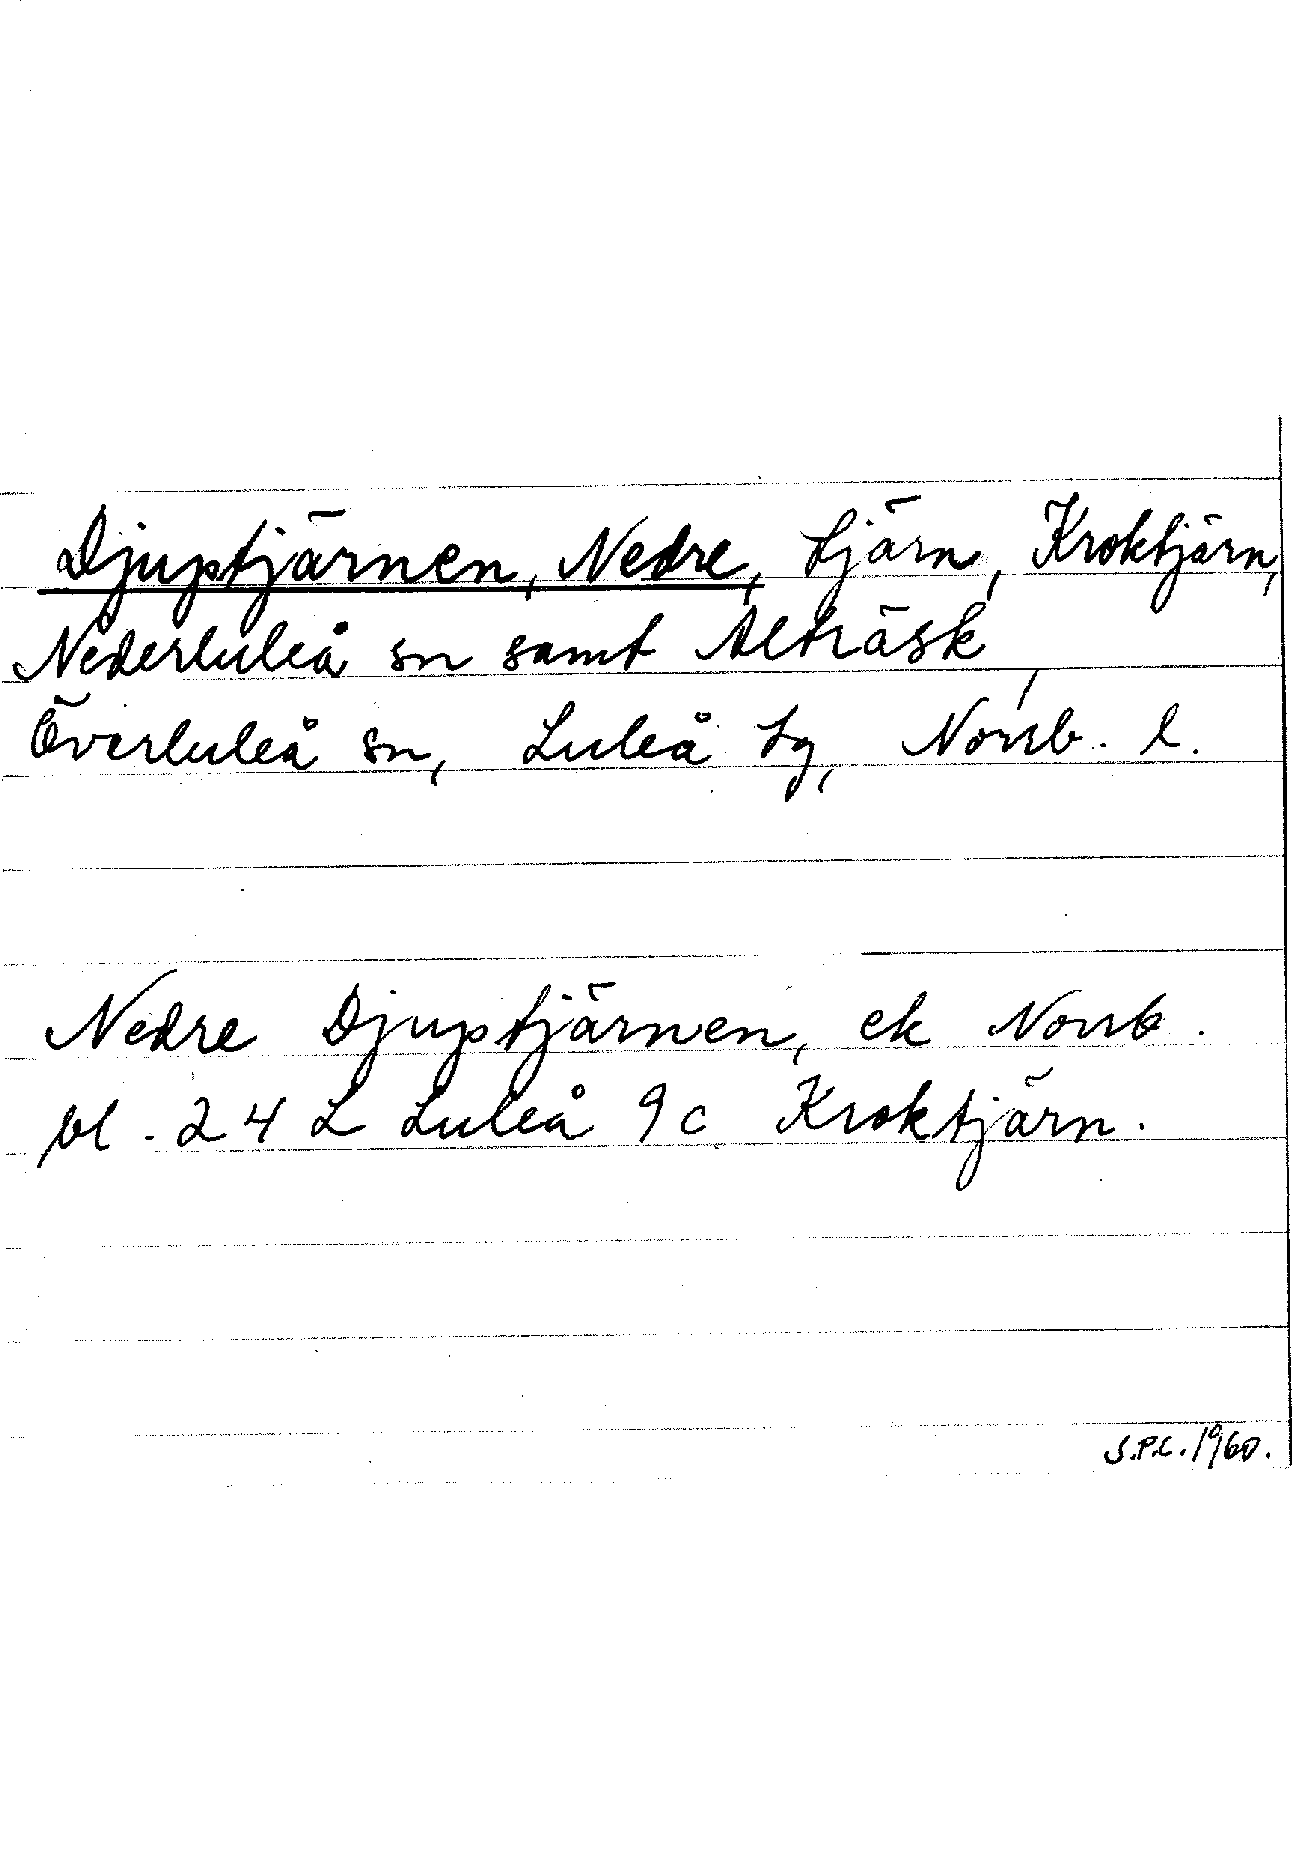 Djuptjärnen, Nedre, tjärn, Kroktjärn,
Nederluleå sn samt Alträsk,
Överluleå sn, Luleå tg, Norrb. l.
Nedre Djuptjärnen, ek Norrb.
bl. 24 L Luleå 9c Kroktjärn.
S.P.L. 1960.